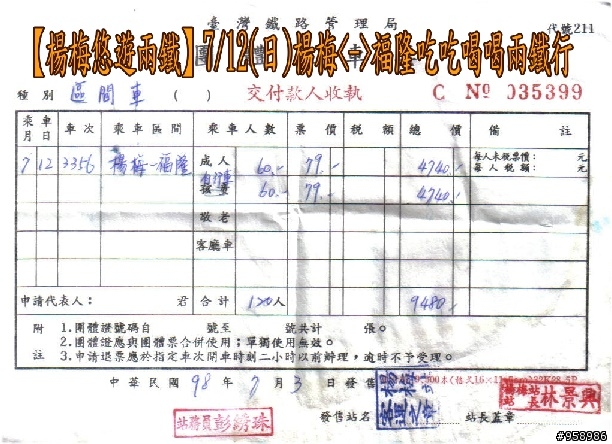 臺灣鐵路管理局
代號211
【楊梅悠遊兩鐵】7/12(日)楊梅<->福隆吃吃喝喝兩鐵行
種別 區間車 ( ) 交付款人收執 C № 035399
乘車月日 車次 乘車區間 乘車人數 票價 稅額 總價 備註
7 12 3356 楊梅-福隆 成人 60.- 79.- 4740.- 每人未稅票價: 元
每人稅額: 元
自行車 60.- 79.- 4740.-
敬老
客廳車
申請代表人: 君 合計 120人 9480.-
附註
1.團體證號碼自 號至 號共計 張。
2.團體證應與團體票合併使用;單獨使用無效。
3.申請退票應於指定車次開車時刻二小時以前辦理,逾時不予受理。
中華民國 98 年 7 月 3 日發售
站務員彭琇珠
發售站名
站長蓋章
楊梅站站長林景興
#958886